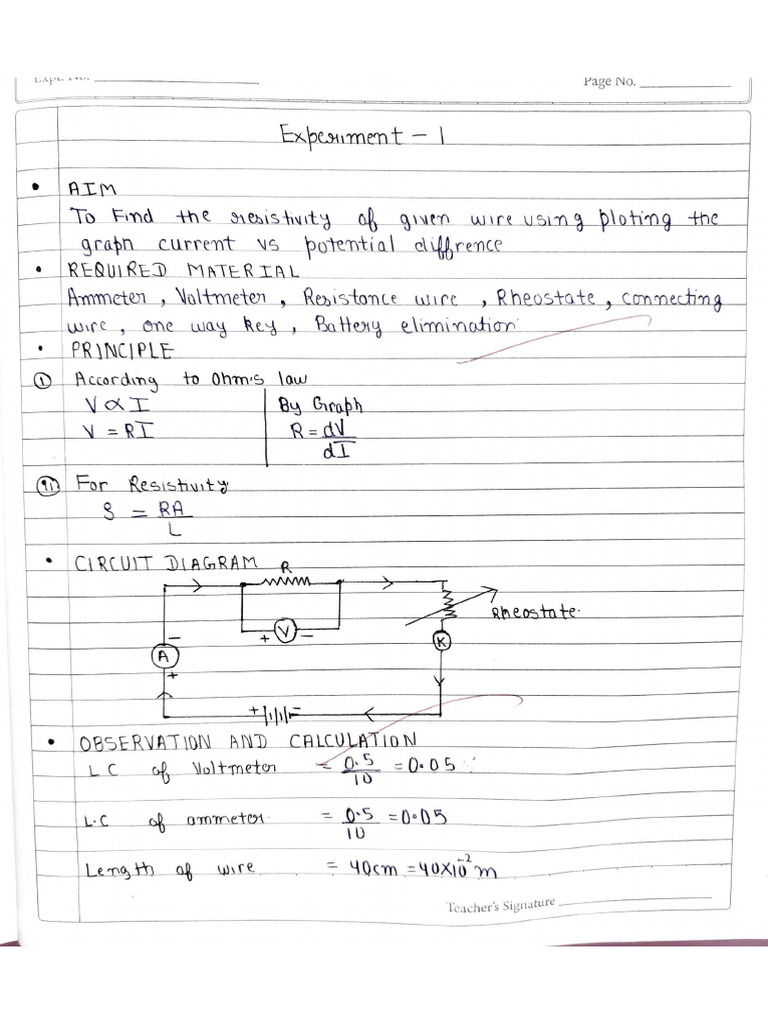 Expt. No.
Page No.
Experiment - 1
• AIM
To Find the resistivity of given wire using ploting the
graph current vs potential diffrence
• REQUIRED MATERIAL
Ammeter, Voltmeter, Resistance wire, Rheostate, connecting
wire, one way key, Battery elimination
• PRINCIPLE
① According to Ohm's law
V ∝ I | By Graph
V = RI | R = dV/dI
ⓘⓘ For Resistivity
S = RA/L
• CIRCUIT DIAGRAM
R
Rheostate
+ V -
-
K
A
+
+ -
• OBSERVATION AND CALCULATION
LC of Voltmeter = 0.5/10 = 0.05
L.C of ammeter = 0.5/10 = 0.05
Length of wire = 40cm = 40×10⁻² m
Teacher's Signature